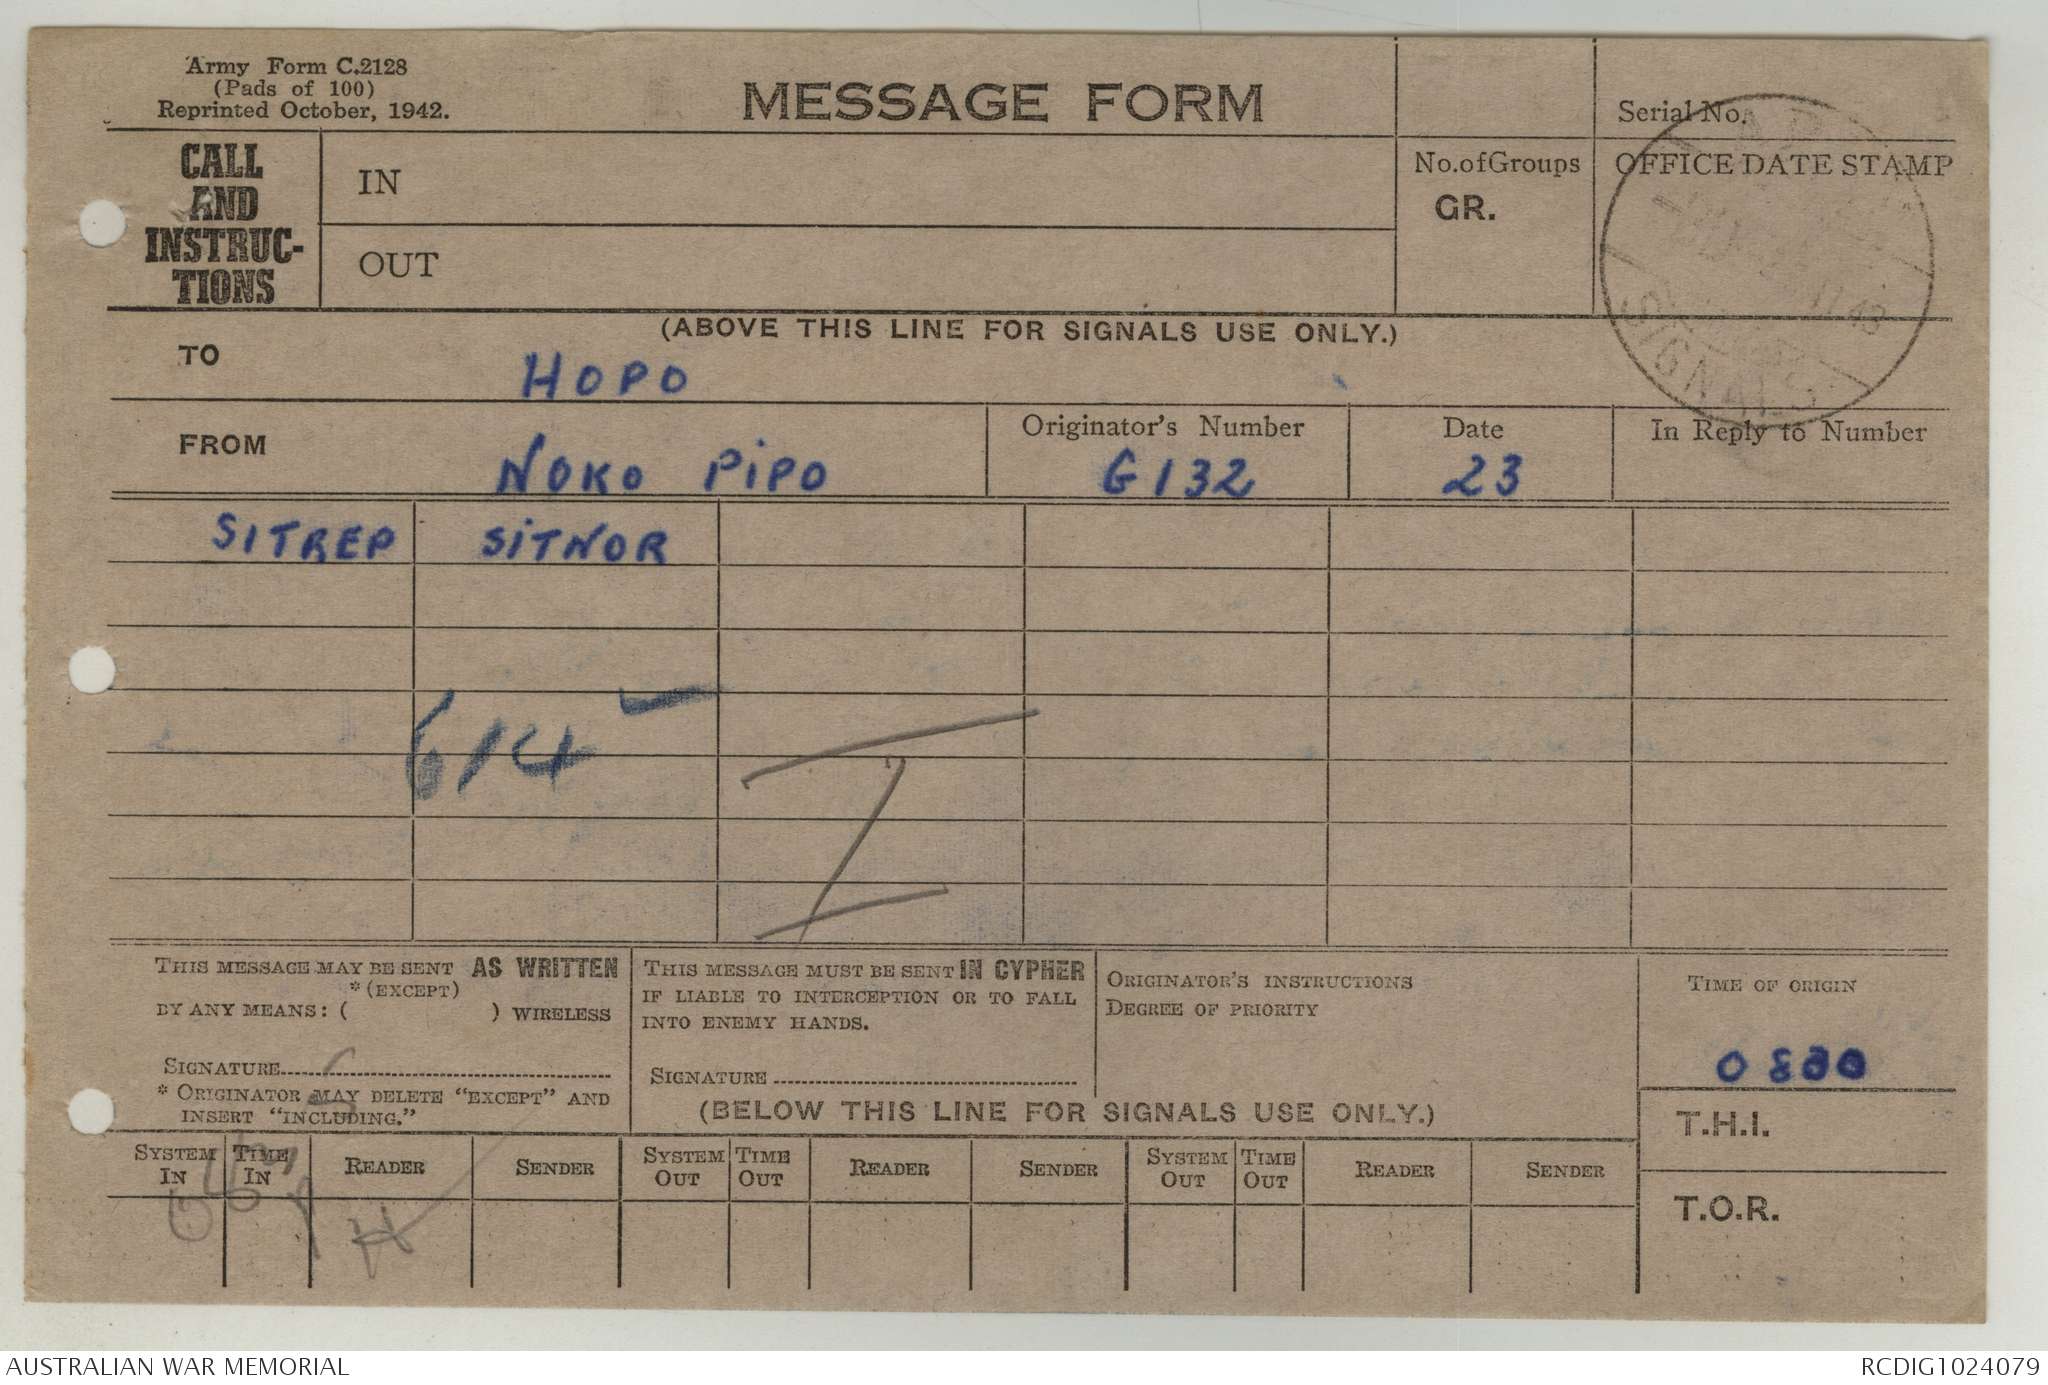 Army Form C.2128
(Pads of 100)
Reprinted October, 1942.
MESSAGE FORM
Serial No.
CALL
AND
INSTRUC-
TIONS
IN
OUT
No. of Groups
GR.
OFFICE DATE STAMP
SIGNALS
(ABOVE THIS LINE FOR SIGNALS USE ONLY.)
TO HOPO
FROM NOKO PIPO
Originator's Number G132
Date 23
In Reply to Number
SITREP SITNOR
614
I
THIS MESSAGE MAY BE SENT AS WRITTEN
*(EXCEPT)
BY ANY MEANS: ( ) WIRELESS
SIGNATURE
* ORIGINATOR MAY DELETE "EXCEPT" AND
INSERT "INCLUDING."
THIS MESSAGE MUST BE SENT IN CYPHER
IF LIABLE TO INTERCEPTION OR TO FALL
INTO ENEMY HANDS.
SIGNATURE
ORIGINATOR'S INSTRUCTIONS
DEGREE OF PRIORITY
TIME OF ORIGIN
(BELOW THIS LINE FOR SIGNALS USE ONLY.)
T.H.I.
T.O.R.
SYSTEM IN
TIME IN
READER
SENDER
SYSTEM OUT
TIME OUT
READER
SENDER
SYSTEM OUT
TIME OUT
READER
SENDER
AUSTRALIAN WAR MEMORIAL
RCDIG1024079